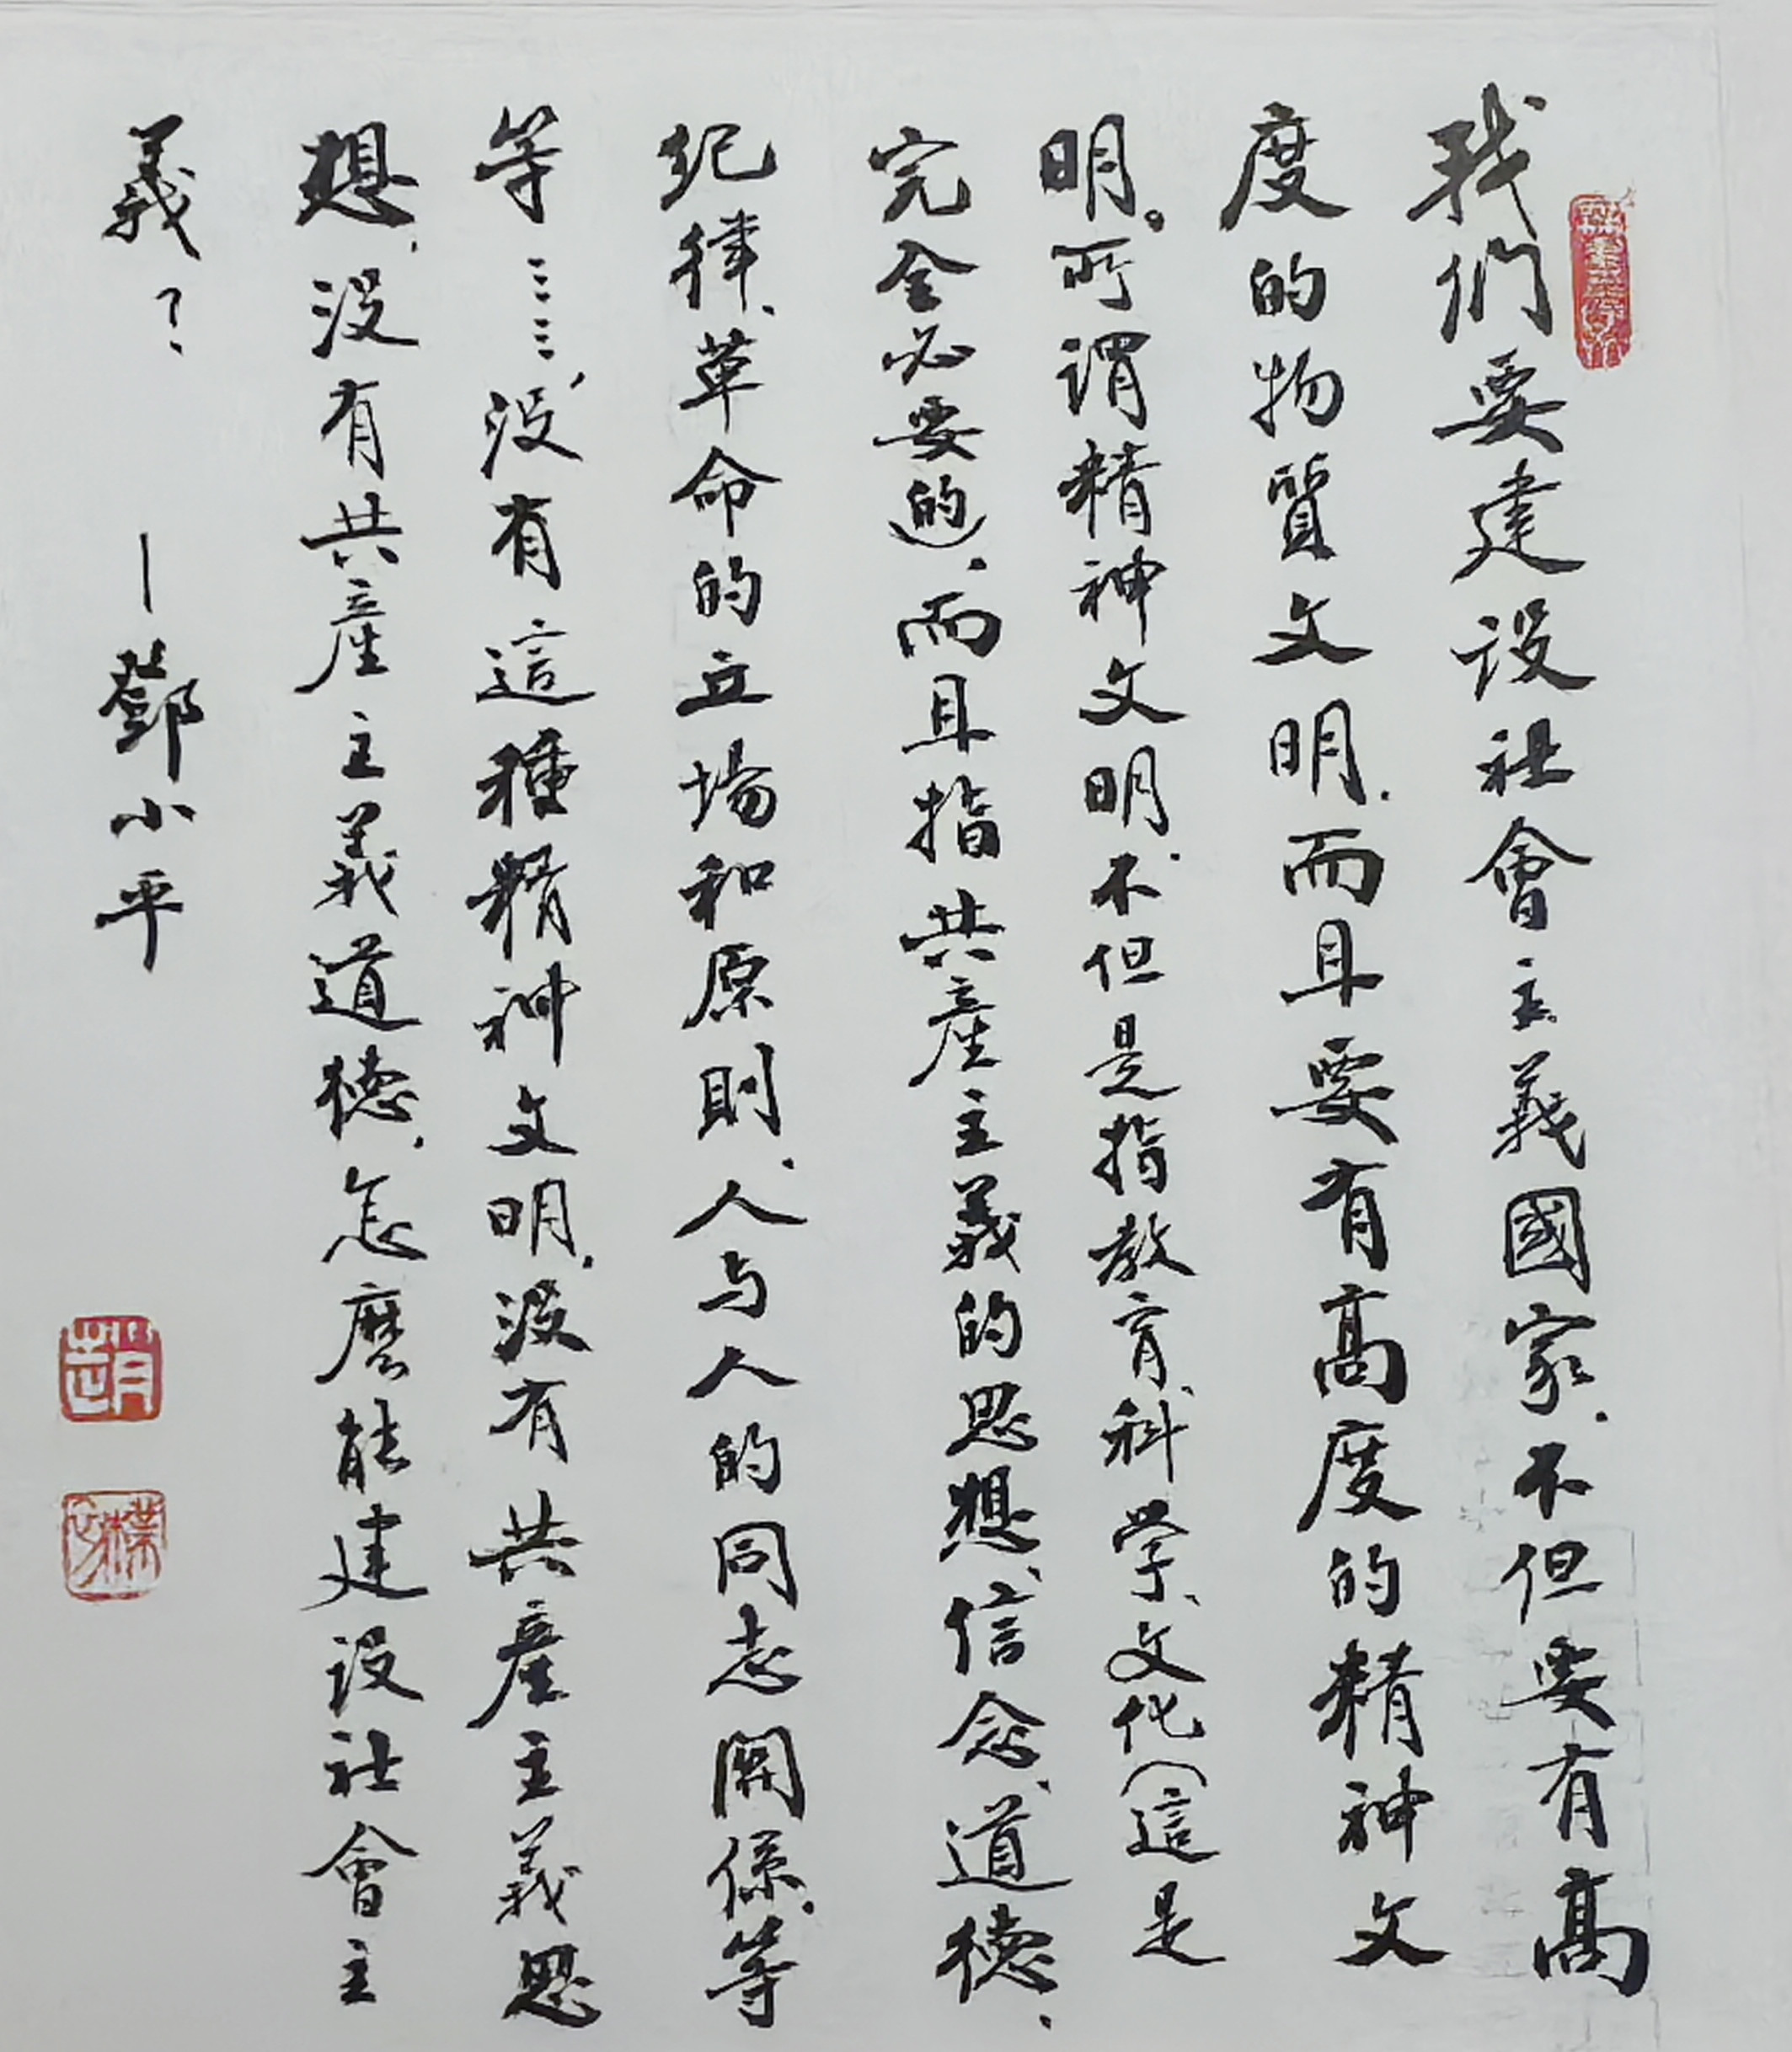 我们要建设社會主義國家.不但要有高
度的物質文明.而且要有高度的精神文
明。所谓精神文明.不但是指教育、科学、文化(這是
完全必要的).而且指共產主義的思想、信念、道德、
纪律、革命的立場和原則、人与人的同志関係.等
等……,没有這種精神文明.没有共產主義思
想,没有共產主義道德,怎麽能建设社會主
義?
—鄧小平
趙